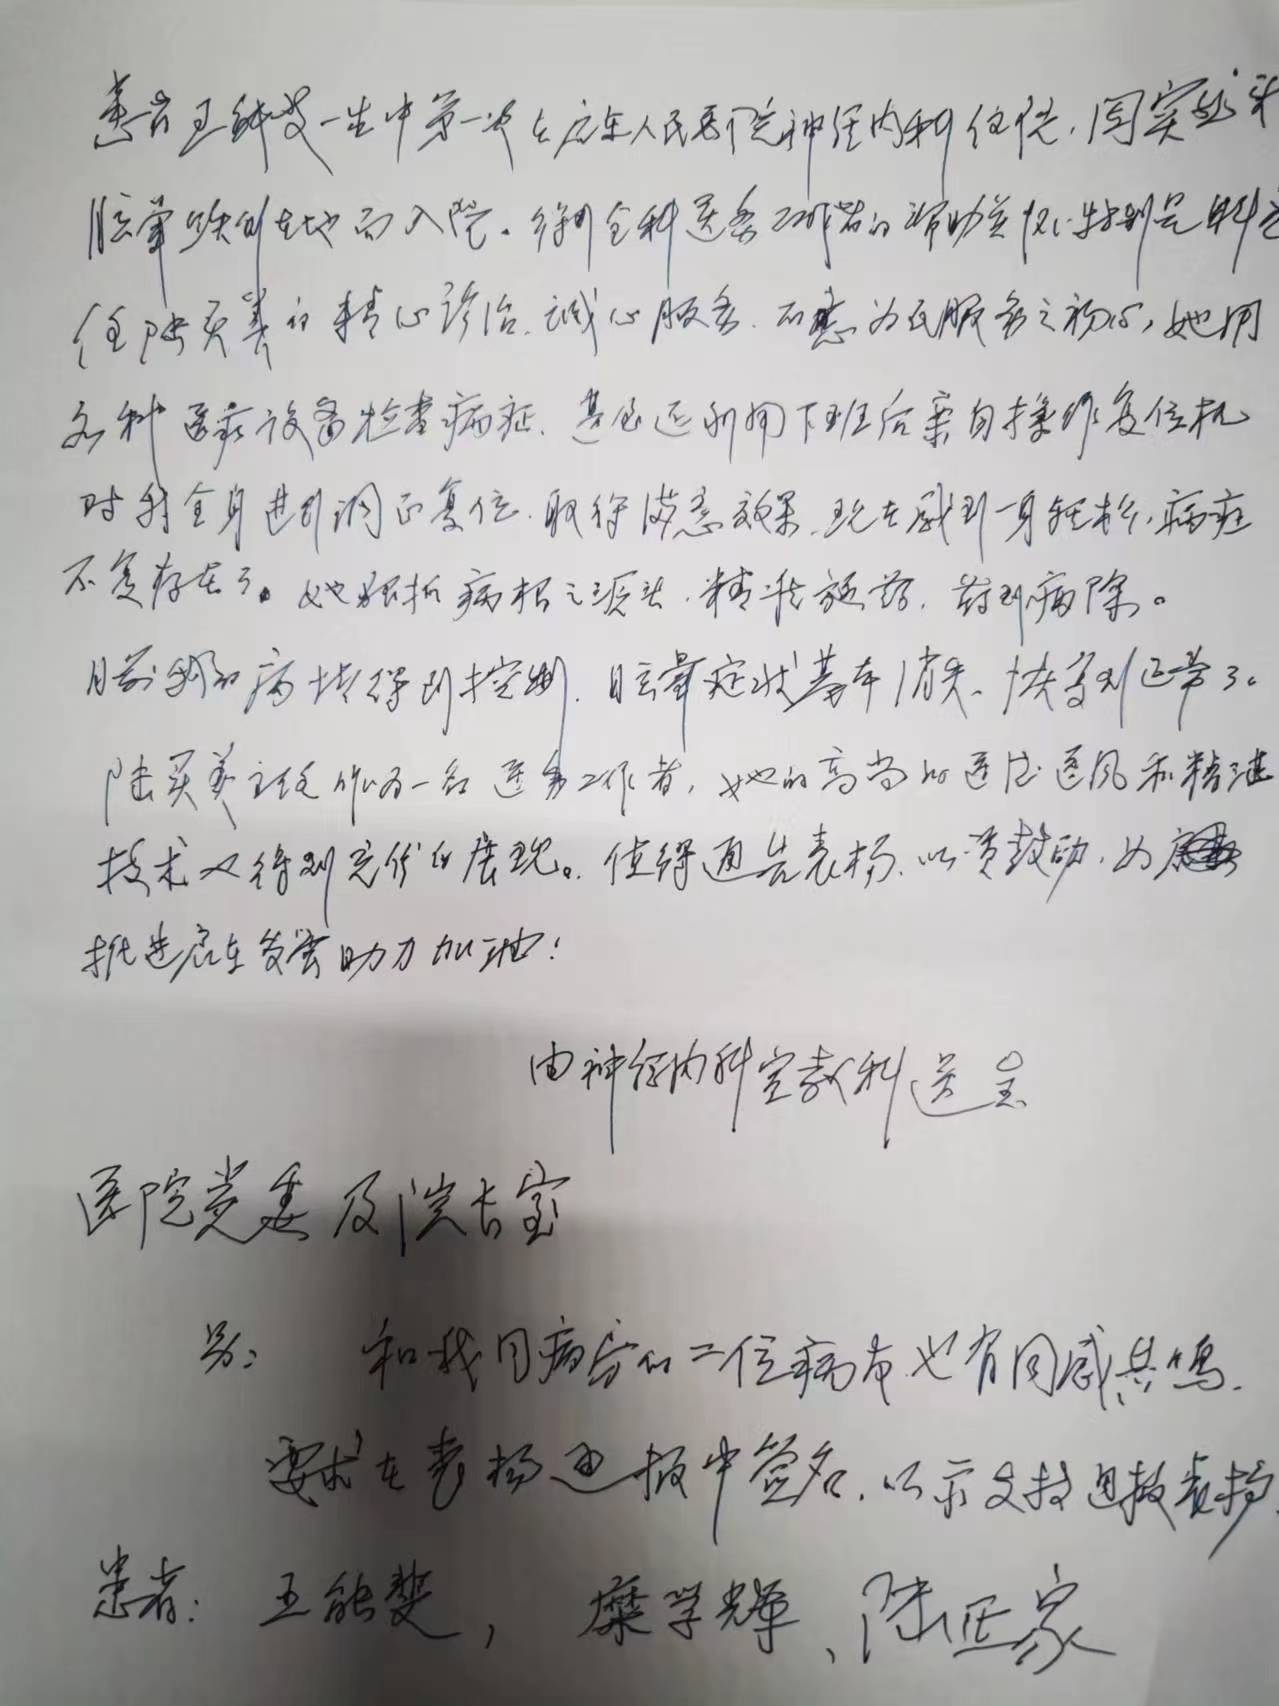 患者王能斐一生中第一次在启东人民医院神经内科住院,因突然来
眩晕跌倒在地而入院。得到全科医务工作者的帮助关怀,特别是科主
任陆买美的精心诊治、诚心服务、不忘为民服务之初心,她用
各种医疗设备检查病症、甚至还利用下班后亲自操作复位机
对我全身进行调正复位、取得满意效果,现在感到一身轻松,病症
不复存在了。她狠抓病根之源头,精准施药,药到病除。
目前我的病情得到控制,眩晕症状基本消失、恢复到正常了。
陆买美主任作为一名医务工作者,她的高尚的医德医风和精湛
技术又得到充分的展现。值得通告表扬、以资鼓励,为
推进启东发展助力加油!
由神经内科室教科送呈
医院党委及院长室
另: 和我同病房的二位病友也有同感共鸣.
要求在表扬通报中签名,以示支持通报表扬.
患者:王能斐,糜学辉、陆正家